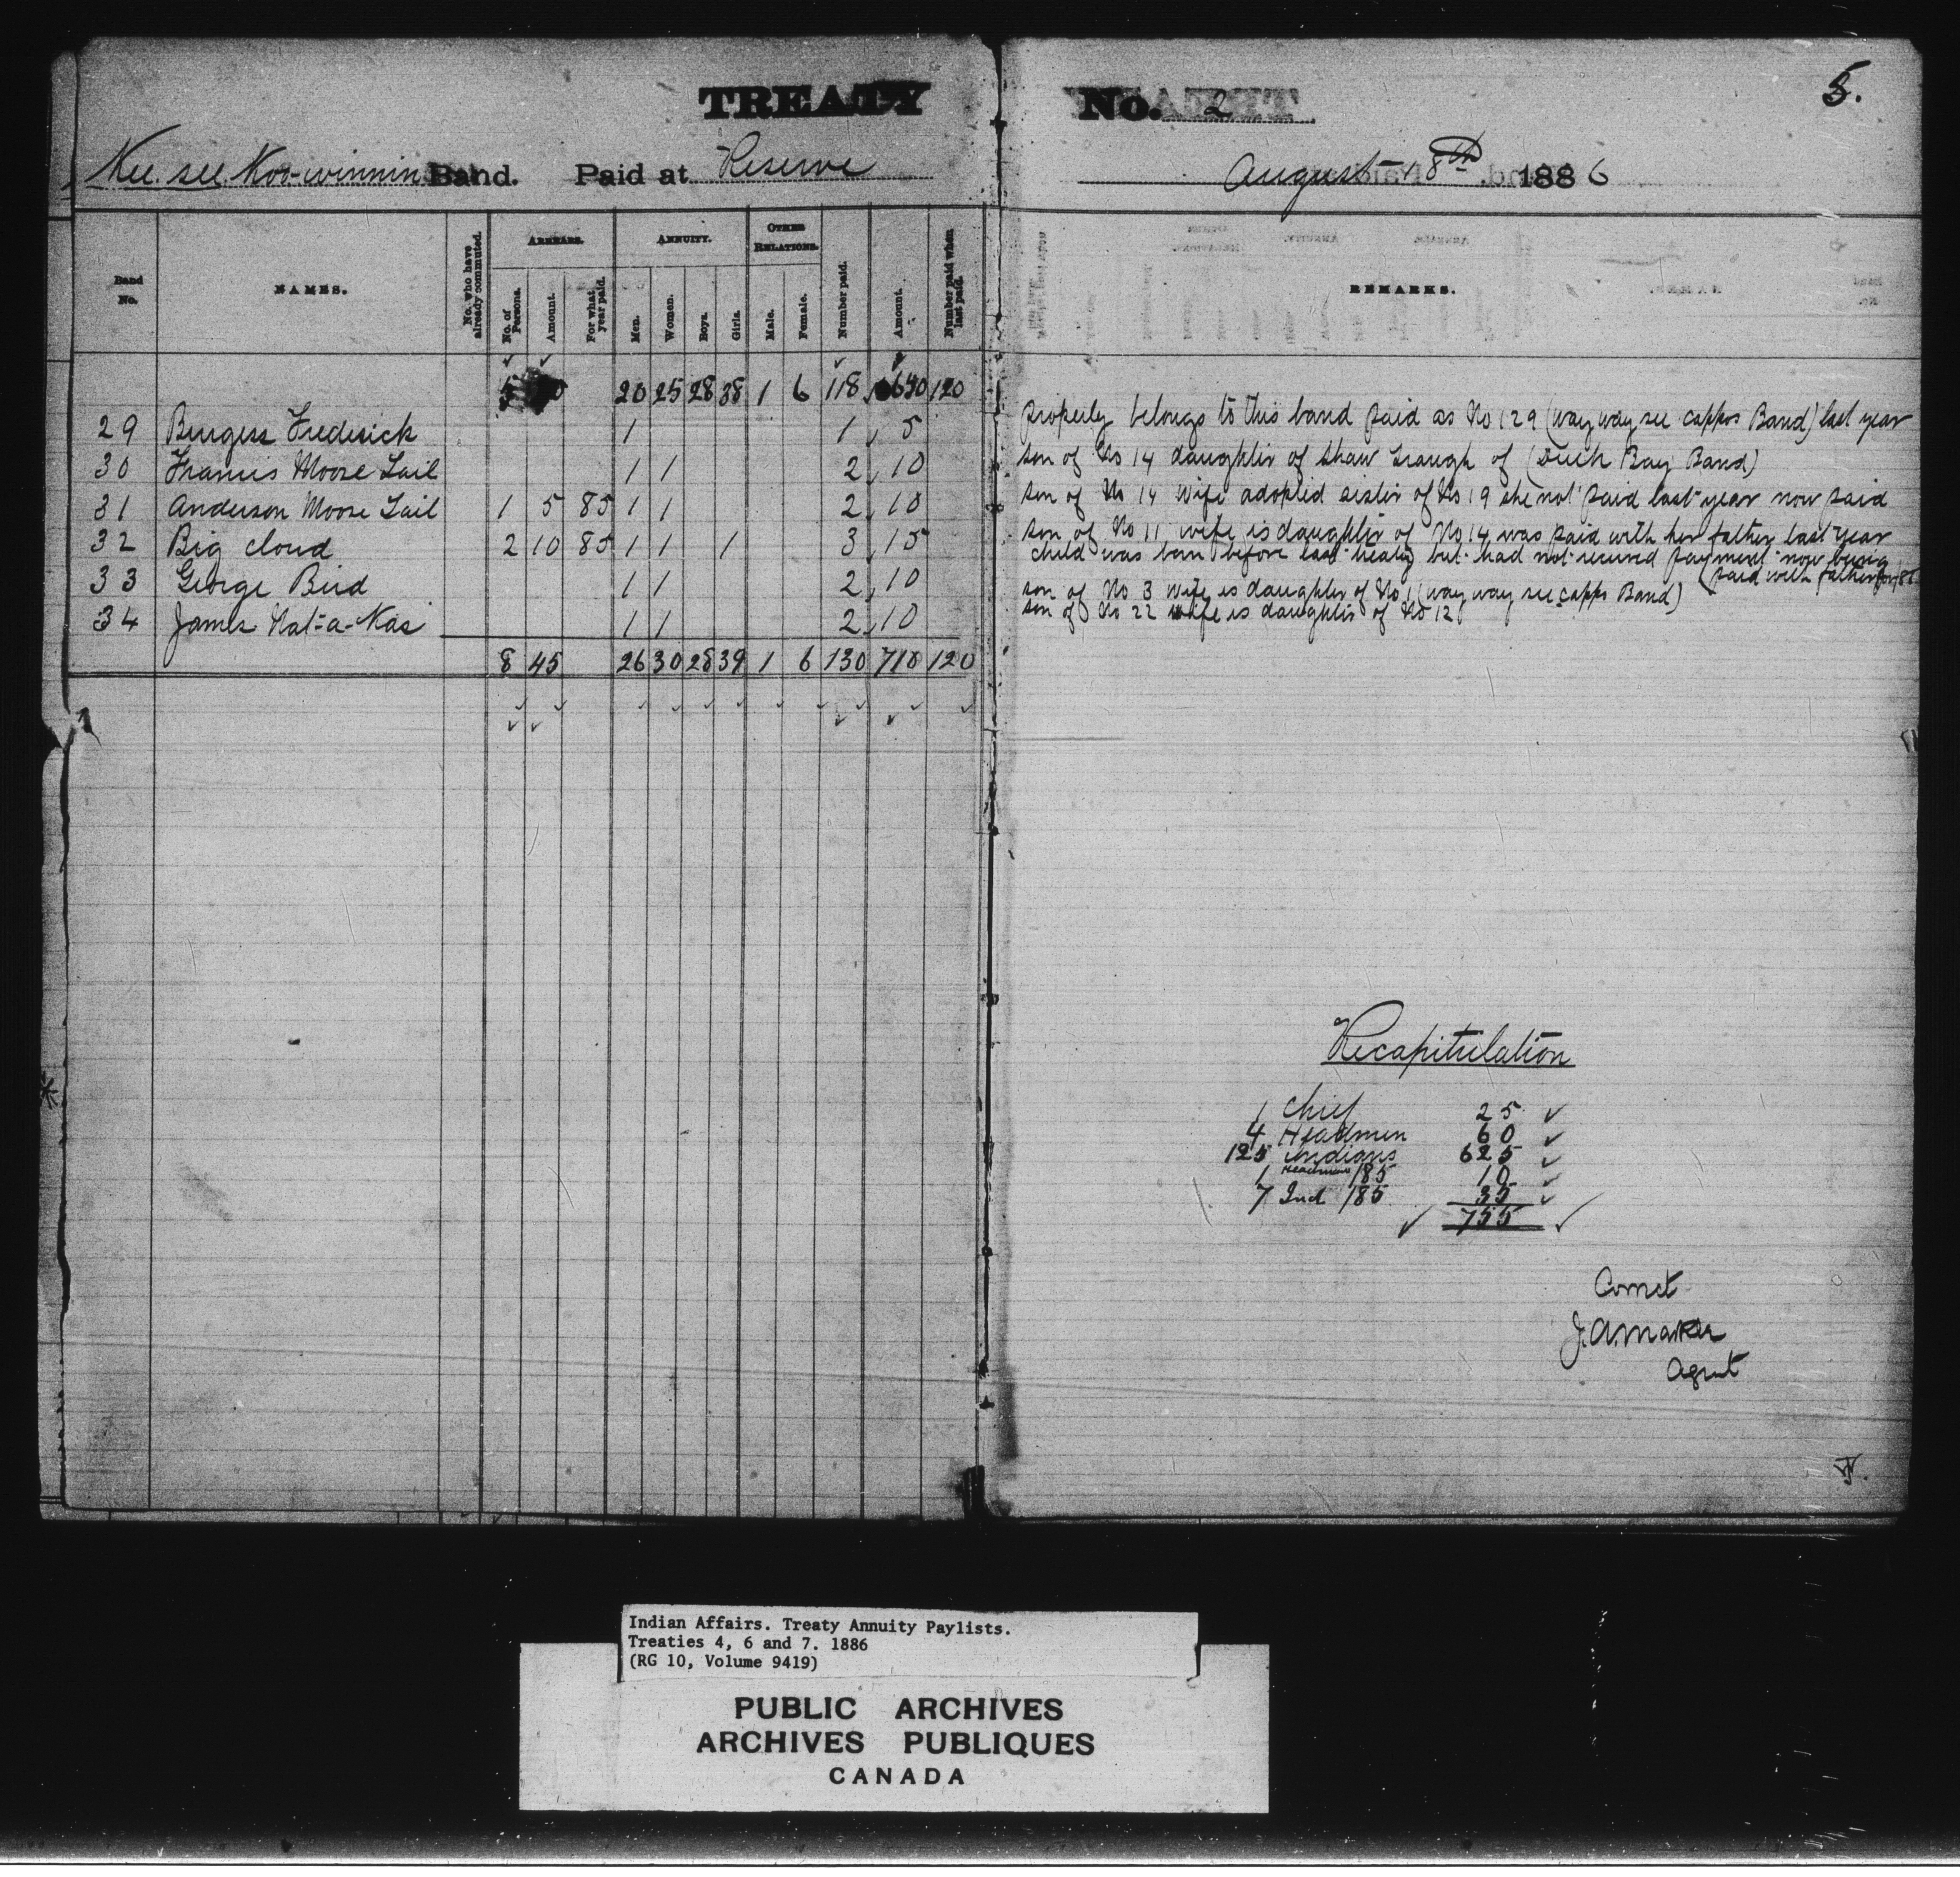 TREATY No. 2
5.
Kee see Koo-winnin Band. Paid at Reserve
August 18th 1886
Band No. NAMES. No. who have already commuted. ARREARS. No. of Persons. Amount. For what year paid. ANNUITY. Men. Women. Boys. Girls. OTHER RELATIONS. Male. Female. Number paid. Amount. Number paid when last paid. REMARKS.
5 20 25 28 38 1 6 118 640 120
29 Burgess Frederick 1 1 5 Properly belongs to this band paid as No 129 (way way see cappos Band) last year
30 Francis Moose Tail 1 1 2 10 son of No 14 daughter of Shaw of (Duck Bay Band)
31 Anderson Moose Tail 1 5 85 1 1 2 10 son of No 14 wife adopted sister of No 19 she not paid last year now paid
32 Big cloud 2 10 85 1 1 1 3 15 son of No 11 wife is daughter of No 14 was paid with her father last year
child was born before last treaty but had not received payment now being
(paid with father for /85
33 George Bird 1 1 2 10 son of No 3 wife is daughter of No 1 (way way see cappo Band)
34 James Nat-a-Kas 1 1 2 10 son of No 22 wife is daughter of No 12
8 45 26 30 28 39 1 6 130 710 120
Recapitulation
1 Chief 25
4 Headmen 60
125 Indians 625
1 Headman /85 10
7 Ind /85 35
755
Correct
J.A. Markle
Agent
Indian Affairs. Treaty Annuity Paylists.
Treaties 4, 6 and 7. 1886
(RG 10, Volume 9419)
PUBLIC ARCHIVES
ARCHIVES PUBLIQUES
CANADA